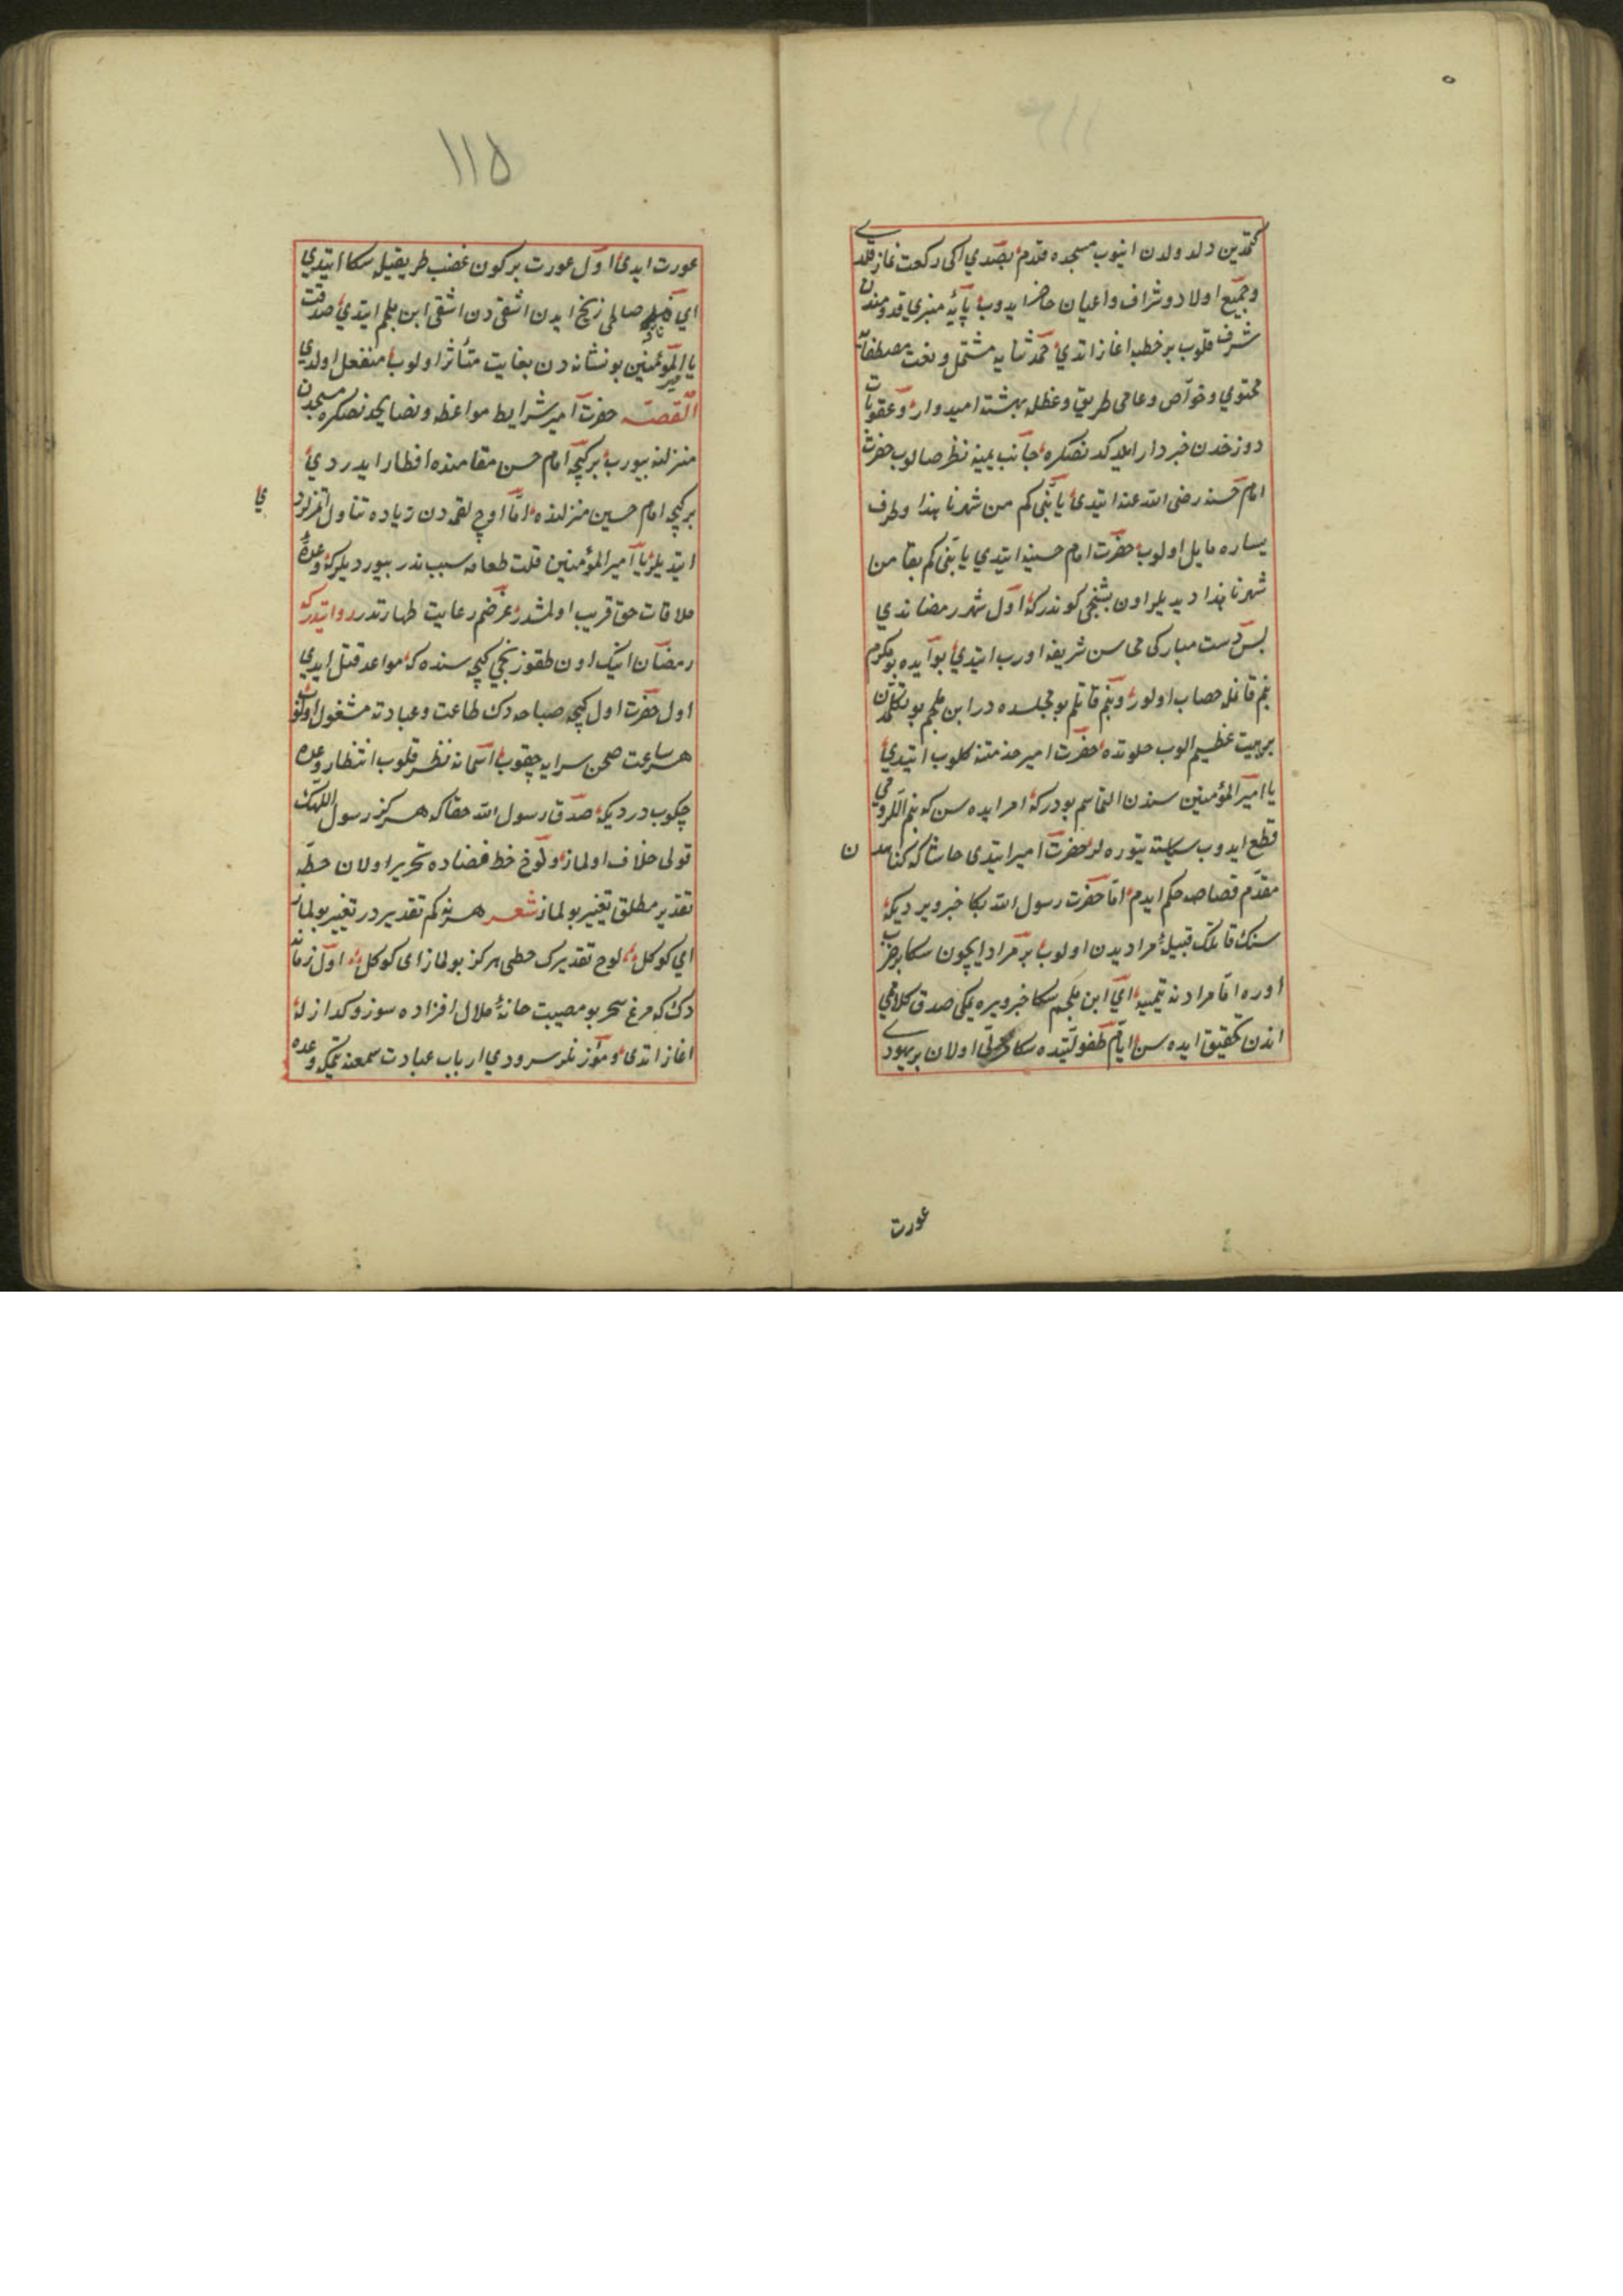 دلدلدن اینوب مسجده قدم بصدی ایکی رکعت نماز قلدی
و جمیع اولاد و شراف و اعیان حاضر ایدوب پایهٔ منبری قدومندن
شرف قلوب بر خطبه اغاز اتدی حمد ثنایه مشتمل و نعت مصطفایه
محتوی و خواص و عامی طریق وعظله بهشته امیدوار و عقوبات
دوزخدن خبردار ایلدکدنصکره جانب یمینه نظر صالوب حضرت
امام حسنه رضی الله عنه ایتدی یا بنی کم من شهرنا هذا و طرف
یساره مایل اولوب حضرت امام حسینه ایتدی یا بنی کم بقا من
شهرنا هذا دیدیلر اون بشنجی کوندر که اول شهر رمضاندی
پس دست مبارکی محاسن شریفه اورب ایتدی بو آیده بو مکرم
بنم قانمله خضاب اولور و بنم قاتلم بو مجلسده در ابن ملجم بو تکلمدن
بر هیبت عظیم الوب خلوتده حضرت امیر خدمتنه کلوب ایتدی
یا امیر المؤمنین سندن التماسم بودر که امر ایده سن که بنم اللرومی
قطع ایدوب سیاسته یتوره لر حضرت امیر ایتدی حاشا که کناهدن
مقدم قصاصه حکم ایدم اما حضرت رسول الله بکا خبر ویردی که
سنک قاتلک قبیلهٔ مرادیدن اولوب بر مراد ایچون سکا بر ضرب
اوره اما مرادنه یتمیه ای ابن ملجم سکا خبر ویره یمکی صدق کلامی
اندن تحقیق ایده سن ایام طفولیتیده سکا اولان بر یهودی
عورت
۱۱۵
عورت ایدی اول عورت بر کون غضب طریقیله سکا ایتدی
ای ناقهٔ صالحی زخم ایدن اشقی دن اشقی ابن ملجم ایتدی صدقت
یا امیر المؤمنین بو نشانه دن بغایت متأثر اولوب منفعل اولدی
القصه حضرت امیر شرایط مواعظ و نصایحدنصکره مسجددن
منزلنه بیورب بر کیجه امام حسن مقامنده افطار ایدردی
بر کیجه امام حسین منزلنده اما اوچ لقمه دن زیاده تناول اتمزلردی
ایتدیلر یا امیر المؤمنین قلت طعامه سبب ندر بیوردیلر که وعدهٔ
ملاقات حق قریب اولمشدر غرضم رعایت طهارتدر روایتدر که
رمضان اینک اون طقوزنجی کیجه سنده که مواعد قتل ایدی
اول حضرت اول کیجه صباحه دک طاعت و عبادته مشغول اولوب
هر ساعت صحن سرایه چقوب اسمانه نظر قلوب انتظار وعده
چکوب دردیکه صدق رسول الله حقا که هرکز رسول اللهک
قولی خلاف اولماز و لوح خط قضاده تحریر اولان خط
تقدیر مطلق تغییر بولماز شعر هر نه کم تقدیردر تغییر بولماز
ای کوکل لوح تقدیرک خطی هرکز بولماز ای کوکل اول زمانه
دک که مرغ سحر بو مصیبت خانهٔ ملال افزاده سوز و کدازله
اغاز اتدی و مؤذنلر سرودی ارباب عبادت سمعنه یتمیکه وعده